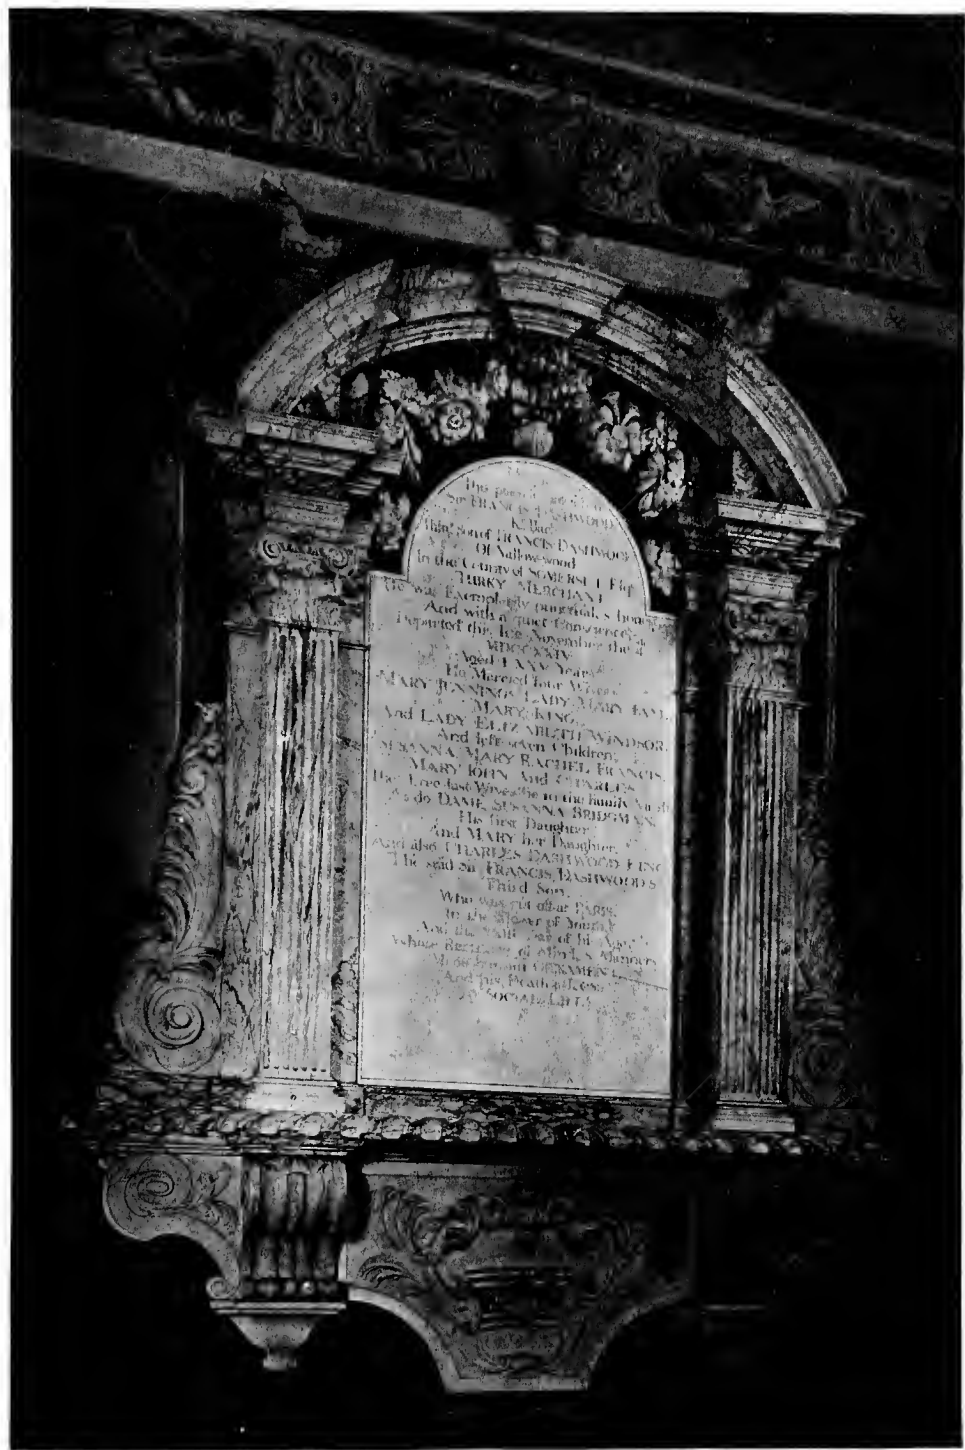 This
Sir FRANCIS DASHWOOD
Kt. Bart
Third Son of FRANCIS DASHWOOD
Of Vallow-wood
In the County of SOMERSET Esqr.
TURKY MERCHANT
He was Exemplarily punctual, & honest
And with a quiet Conscience
Departed this Life November the 4
MDCCXXIV
Aged LXXV Years
He Marryed four Wives
MARY JENNINGS, LADY MARY FANE,
MARY KING,
And LADY ELIZABETH WINDSOR,
And left seven Children,
SUSANNA, MARY, RACHEL, FRANCIS,
MARY, JOHN And CHARLES
His three last Wives lie in the family Vault
As do DAME SUSANNA BRIDGMAN,
His first Daughter,
And MARY her Daughter,
And also CHARLES DASHWOOD KING
The said Sir FRANCIS DASHWOOD'S
Third Son,
Who was cut off at PARIS,
In the Flower of Youth
And the Year of his Age
Whose of Mind & Manners
ORNAMENT
And his Death a Loss
To SOCIAL LIFE